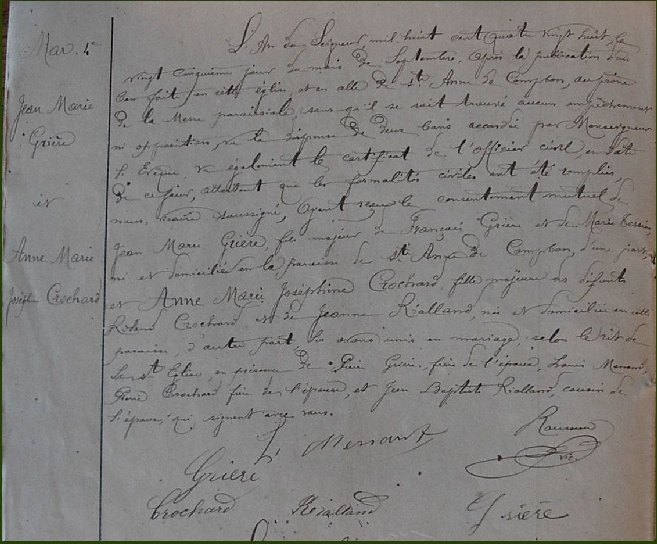 Mar. 4e
Jean Marie
Grière
et
Anne Marie
Joséph. Crochard
L'An du Seigneur, mil huit cent quatre vingt huit, le
vingt cinquième jour du mois de Septembre, après la publication d'un
ban fait en cette église, et en celle de Ste Anne de Campbon, au prône
de la Messe paroissiale, sans qu'il se soit trouvé aucun empêchement
ni opposition, vu la dispense de deux bans accordée par Monseigneur
l'Evêque, vu également le certificat de l'officier civil, en date
de ce jour, attestant que les formalités civiles ont été remplies,
nous, vicaire soussigné, ayant reçu le consentement mutuel de
Jean Marie Grière, fils majeur de François Grière et de Marie
né et domicilié en la paroisse de Ste Anne de Campbon, d'une part;
et Anne Marie Joséphine Crochard, fille majeure des défunts
Crochard et de Jeanne Réalland, née et domiciliée en cette
paroisse, d'autre part, les avons unis en mariage, selon le rit de
la Ste Eglise, en présence de Grière, frère de l'époux, Louis Menant,
Pierre Crochard frère de l'épouse, et Jean Baptiste Rialland, cousin de
l'épouse, qui signent avec nous.
Menant
Grière
vic.
Crochard Réialland